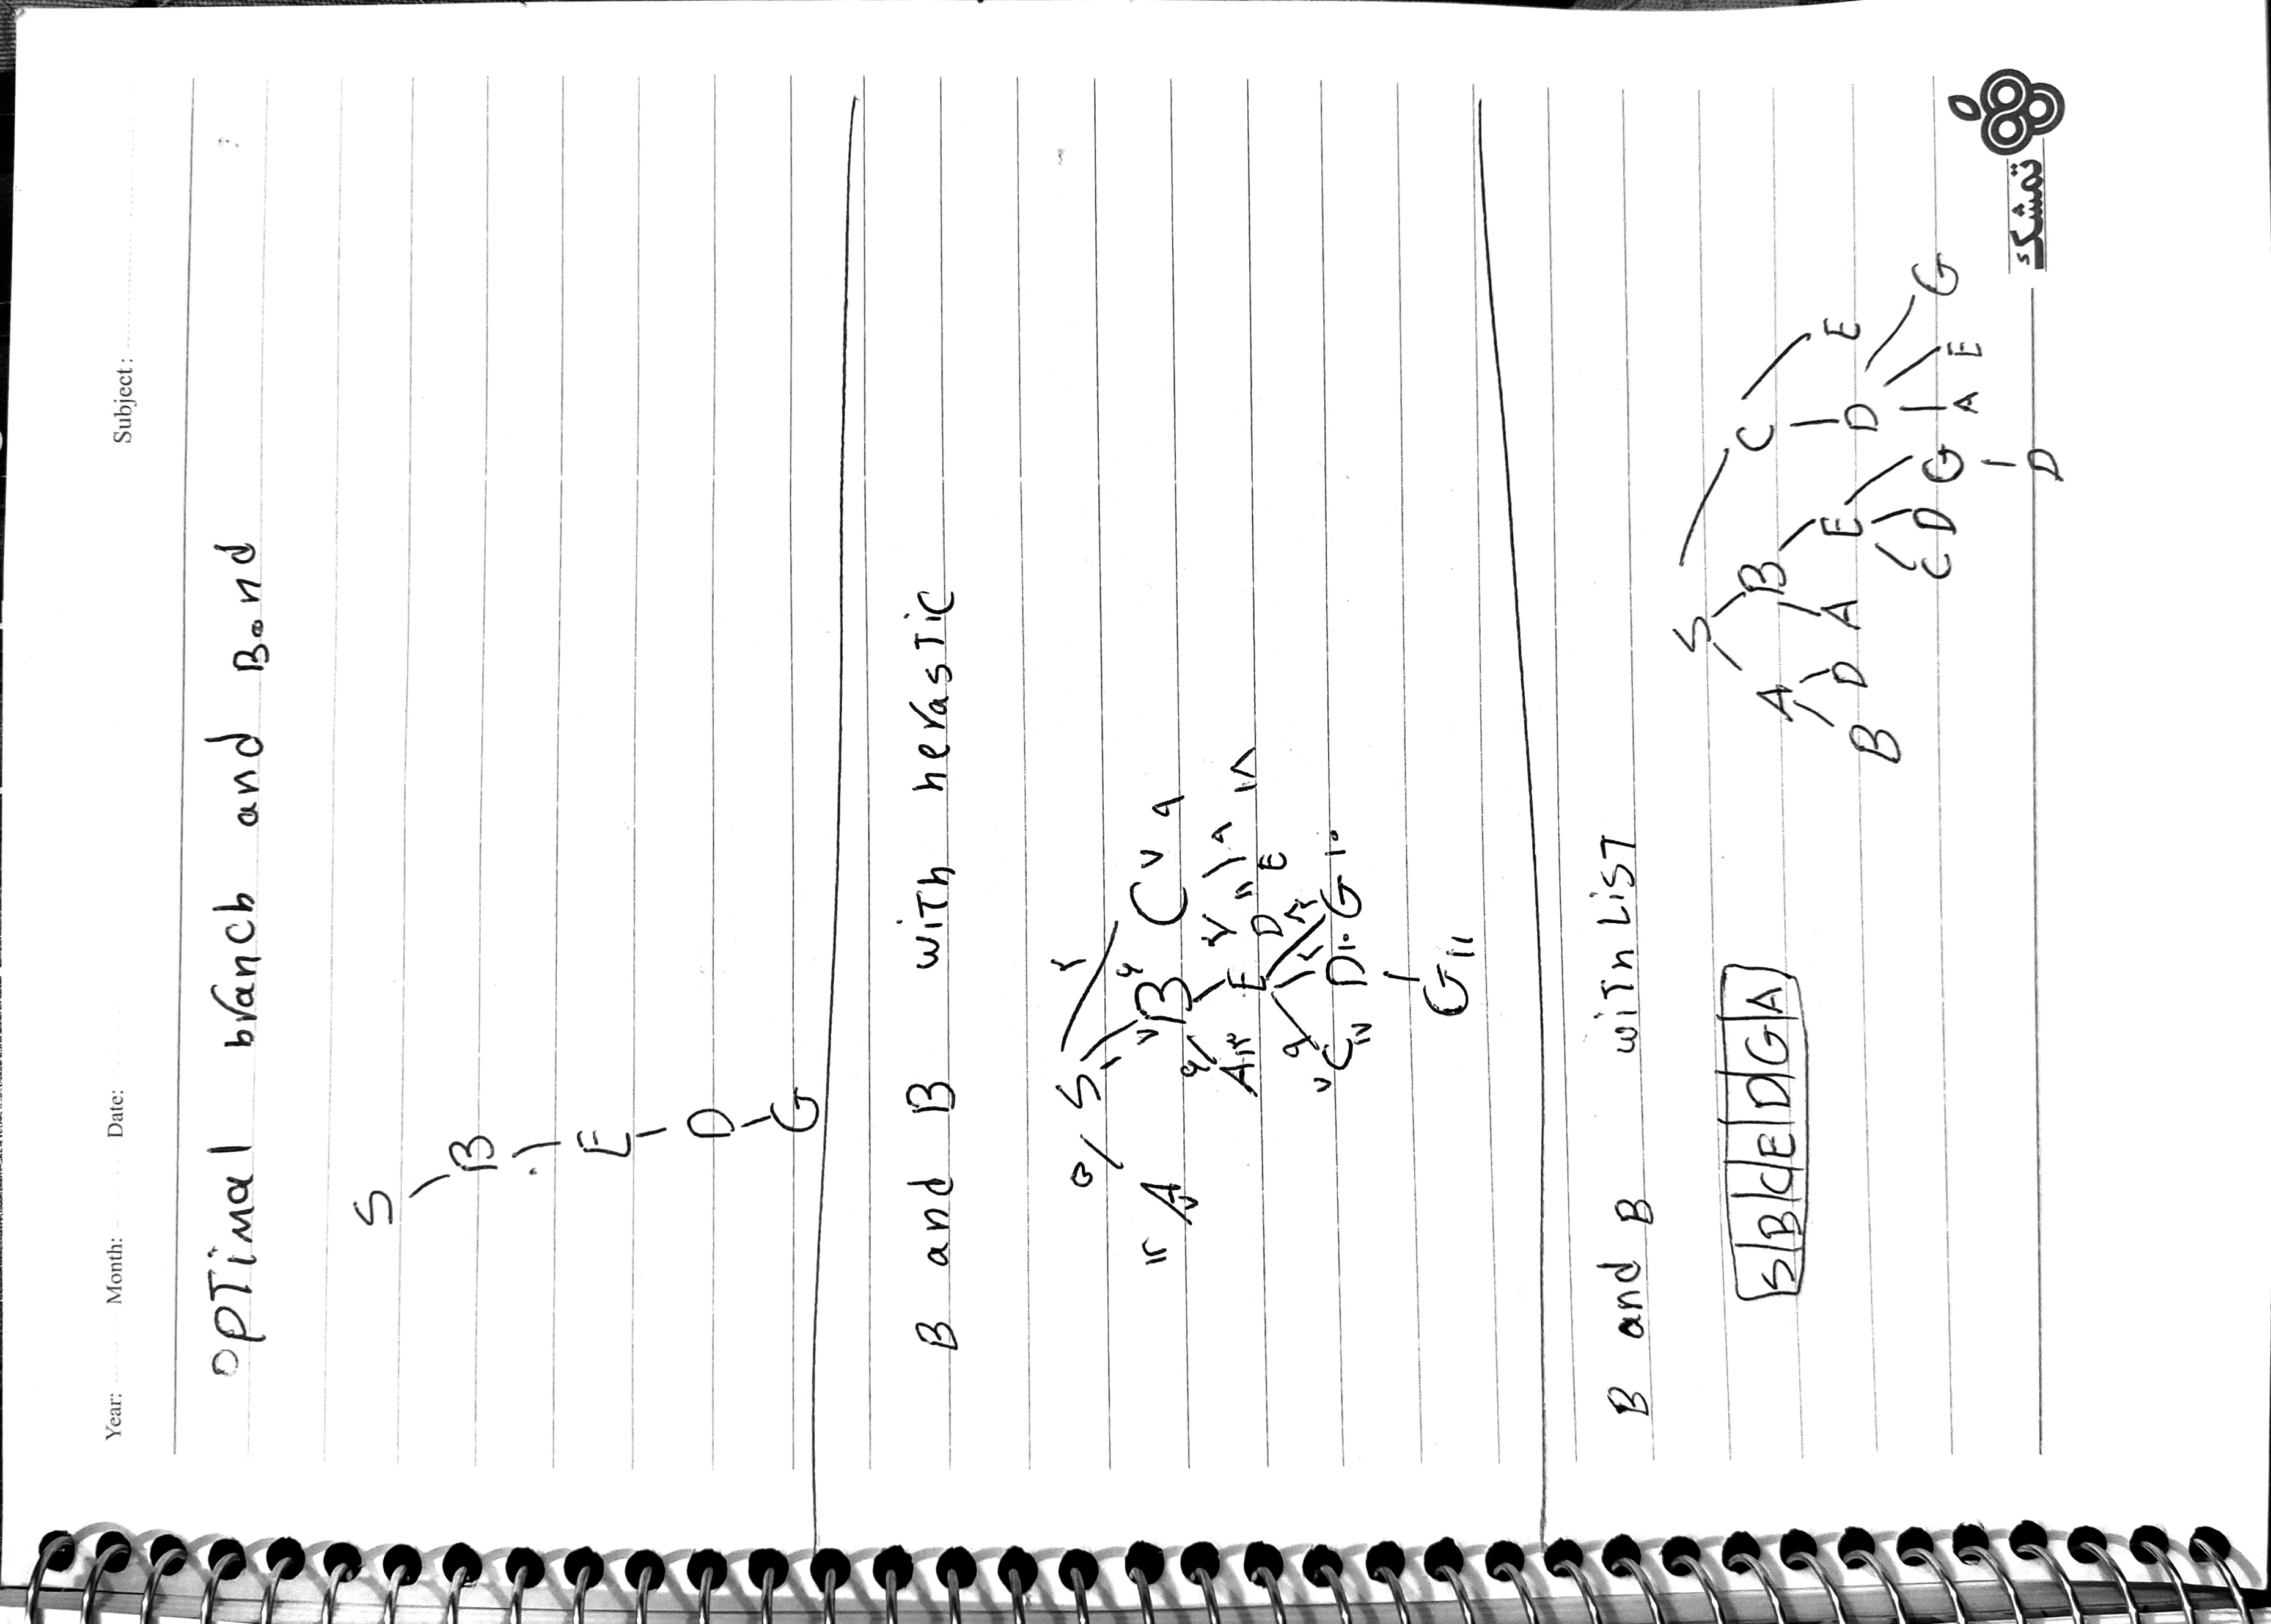 Year: Month: Date: Subject:
OPTimal branch and Bond
S
B
E
D
G
B and B with herastic
۵ S ۲
۱۲ A ۷ B ۶ C ۷ ۹
A ۱۳ E D ۱۱ E ۹ ۱۸
۷ C ۱۷ D ۱۰ G ۱۰
G ۱۱
B and B with LiST
S
S B C E D G A
A B C
B D A E D E
C D G A E G
D
تمشك